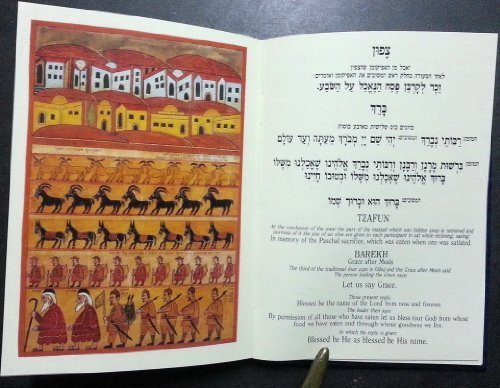 צָפוּן
יאכל מן האפיקומן שהצפין
לאחר הסעודה מחלק ראש המסובים את האפיקומן ואומרים
זֵכֶר לְקָרְבַּן פֶּסַח הַנֶּאֱכָל עַל הַשֹּׂבַע.
בָּרֵךְ
מוזגים כוס שלישית מארבע כוסות
המזמן: רַבּוֹתַי נְבָרֵךְ המסובים: יְהִי שֵׁם יְיָ מְבֹרָךְ מֵעַתָּה וְעַד עוֹלָם
המזמן: בִּרְשׁוּת מָרָנָן וְרַבָּנָן וְרַבּוֹתַי נְבָרֵךְ אֱלֹהֵינוּ שֶׁאָכַלְנוּ מִשֶּׁלּוֹ
בָּרוּךְ אֱלֹהֵינוּ שֶׁאָכַלְנוּ מִשֶּׁלּוֹ וּבְטוּבוֹ חָיִינוּ
המסובים: בָּרוּךְ הוּא וּבָרוּךְ שְׁמוֹ
TZAFUN
At the conclusion of the meal the part of the matzah which was hidden away is retrieved and
portions of it the size of an olive are given to each participant to eat while reclining, saying:
In memory of the Paschal sacrifice, which was eaten when one was satiated.
BAREKH
Grace after Meals
The third of the traditional four cups is filled and the Grace after Meals said.
The person leading the Grace says:
Let us say Grace.
Those present reply:
Blessed be the name of the Lord from now and forever.
The leader then says:
By permission of all those who have eaten let us bless our God from whose
food we have eaten and through whose goodness we live.
To which the reply is given:
Blessed be He as blessed be His name.